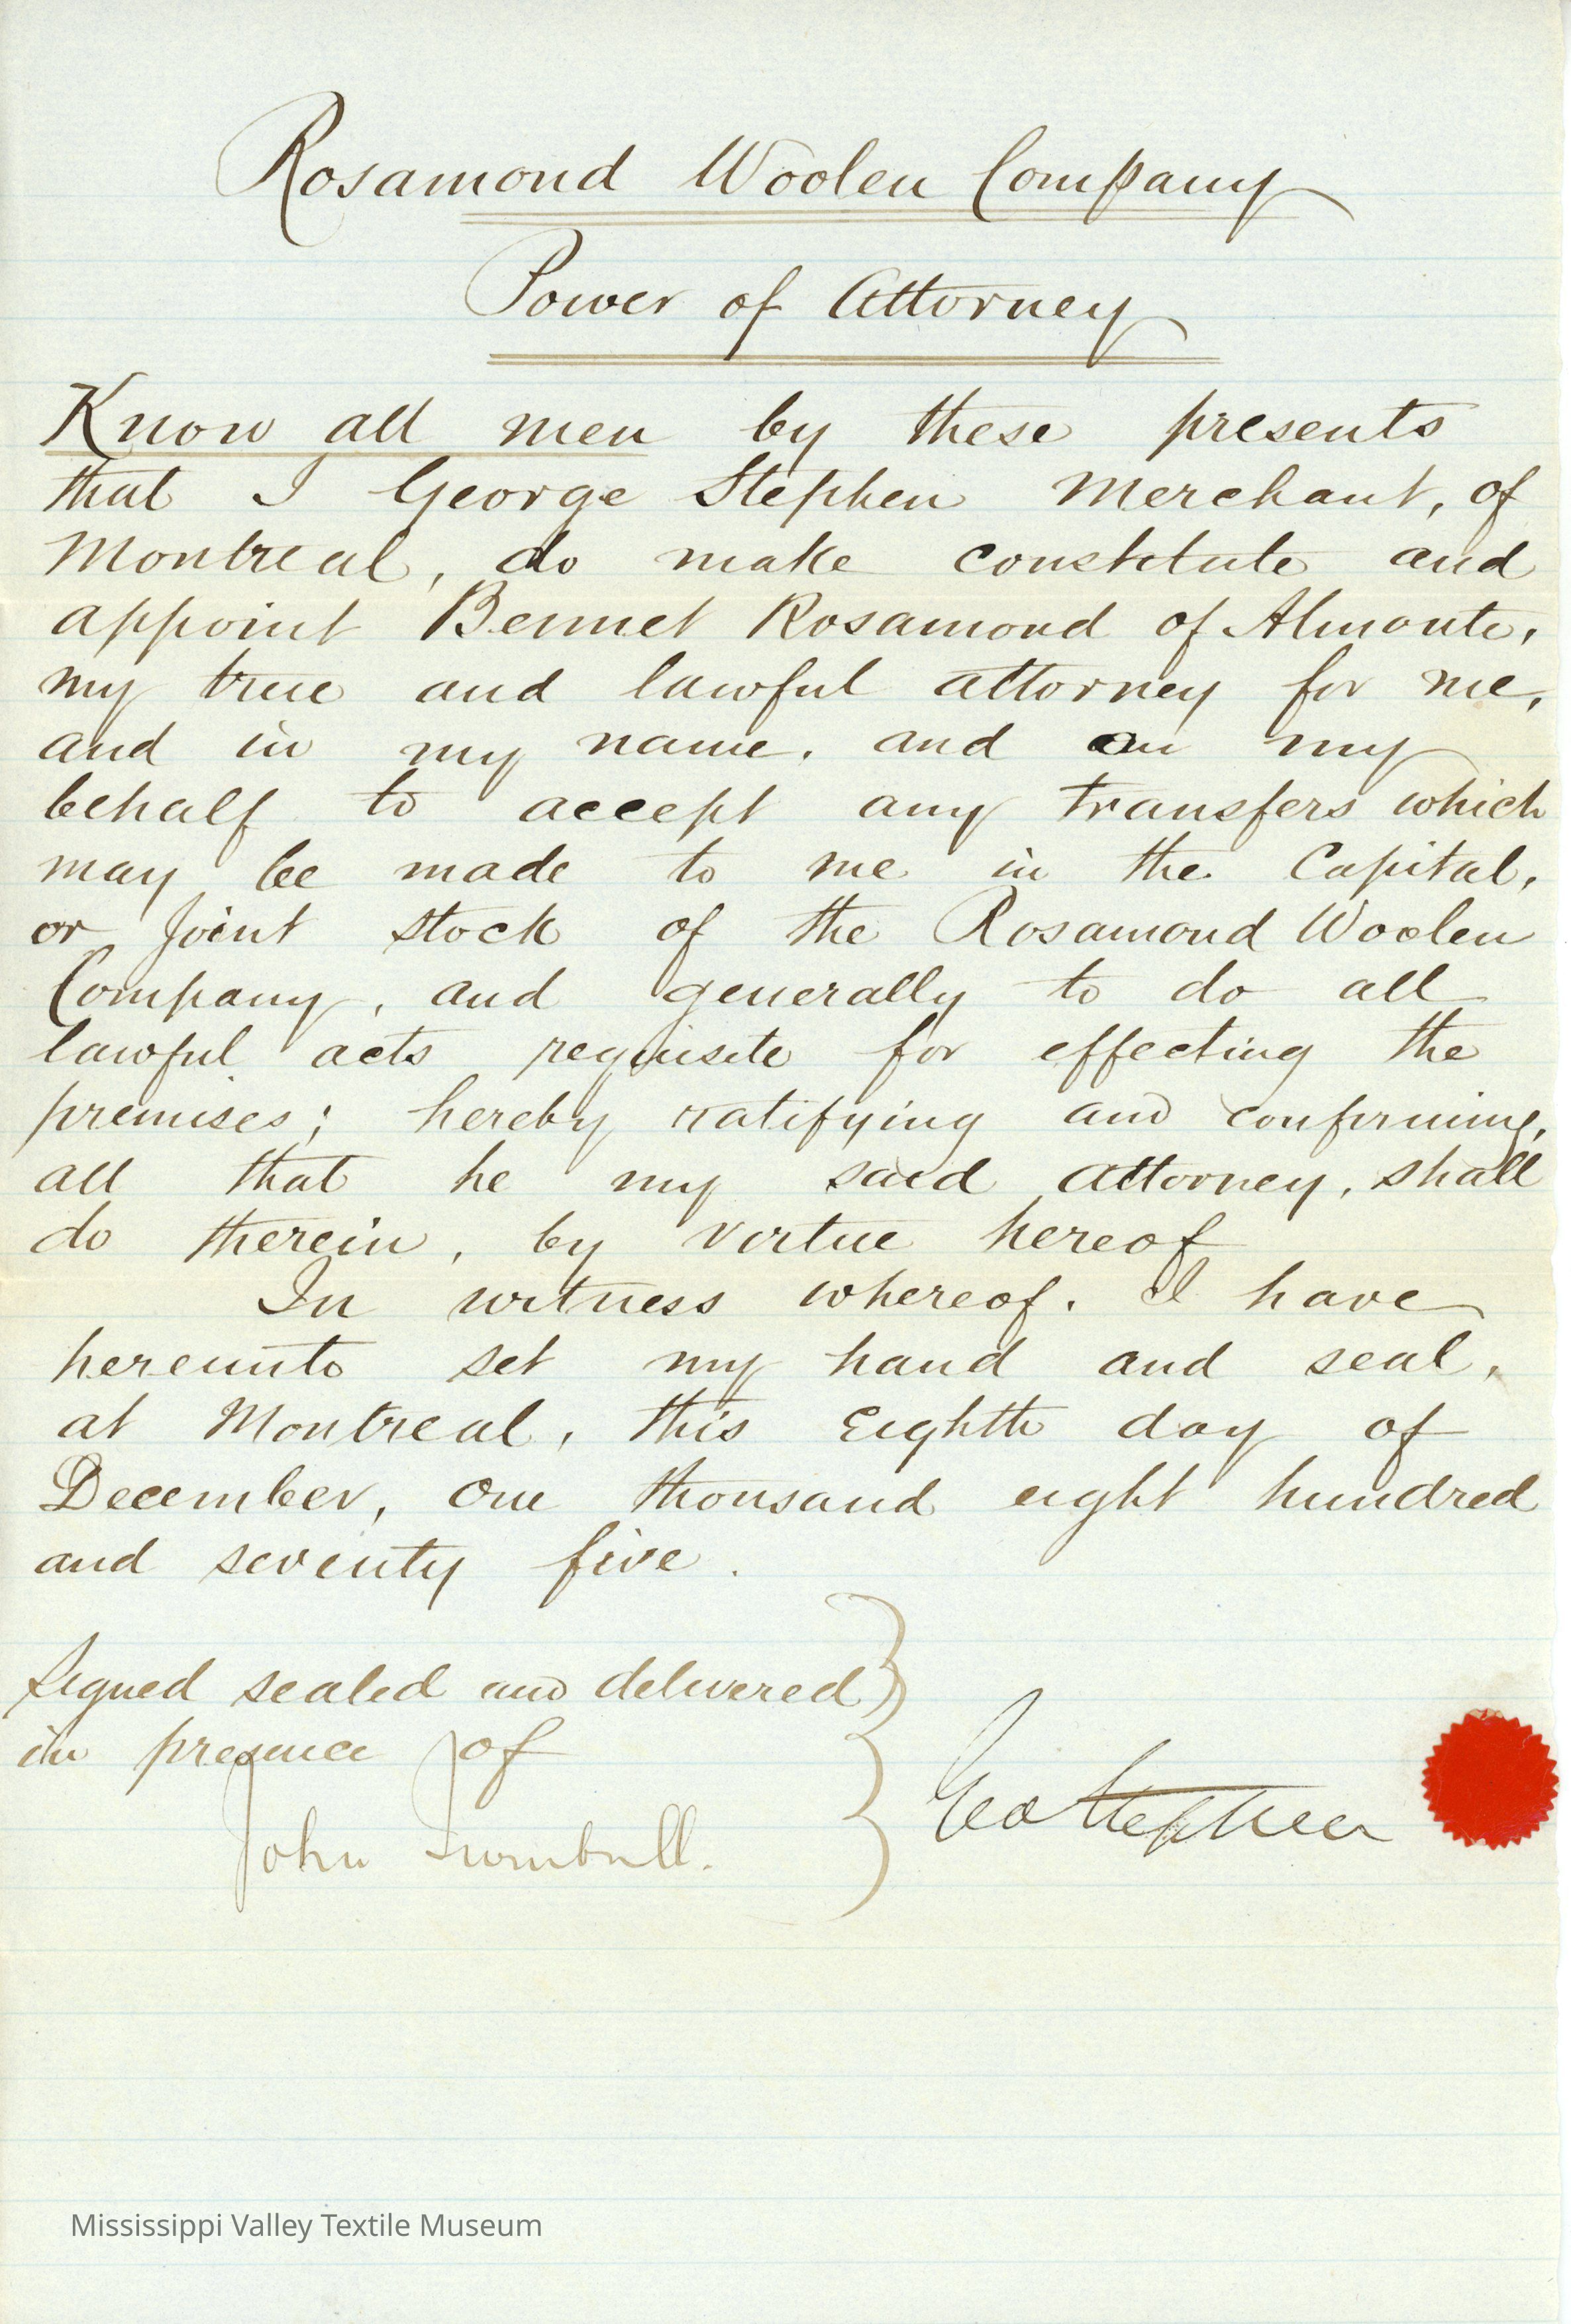 Rosamond Woolen Company
Power of Attorney
Know all men by these presents
that I George Stephen Merchant, of
Montreal, do make constitute and
appoint Bennet Rosamond of Almonte,
my true and lawful attorney for me,
and in my name, and on my
behalf to accept any transfers which
may be made to me in the Capital,
or Joint stock of the Rosamond Woolen
Company, and generally to do all
lawful acts requisite for effecting the
premises; hereby ratifying and confirming,
all that he my said attorney, shall
do therein, by virtue hereof
In witness whereof. I have
hereunto set my hand and seal,
at Montreal, this Eighth day of
December, one thousand eight hundred
and seventy five.
Signed sealed and delivered
in presence of
John Turnbull.
Geo Stephen
Mississippi Valley Textile Museum